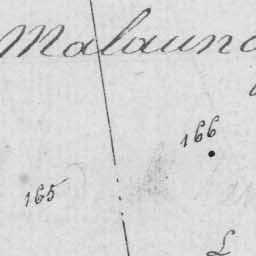 Malaund
166
165
L